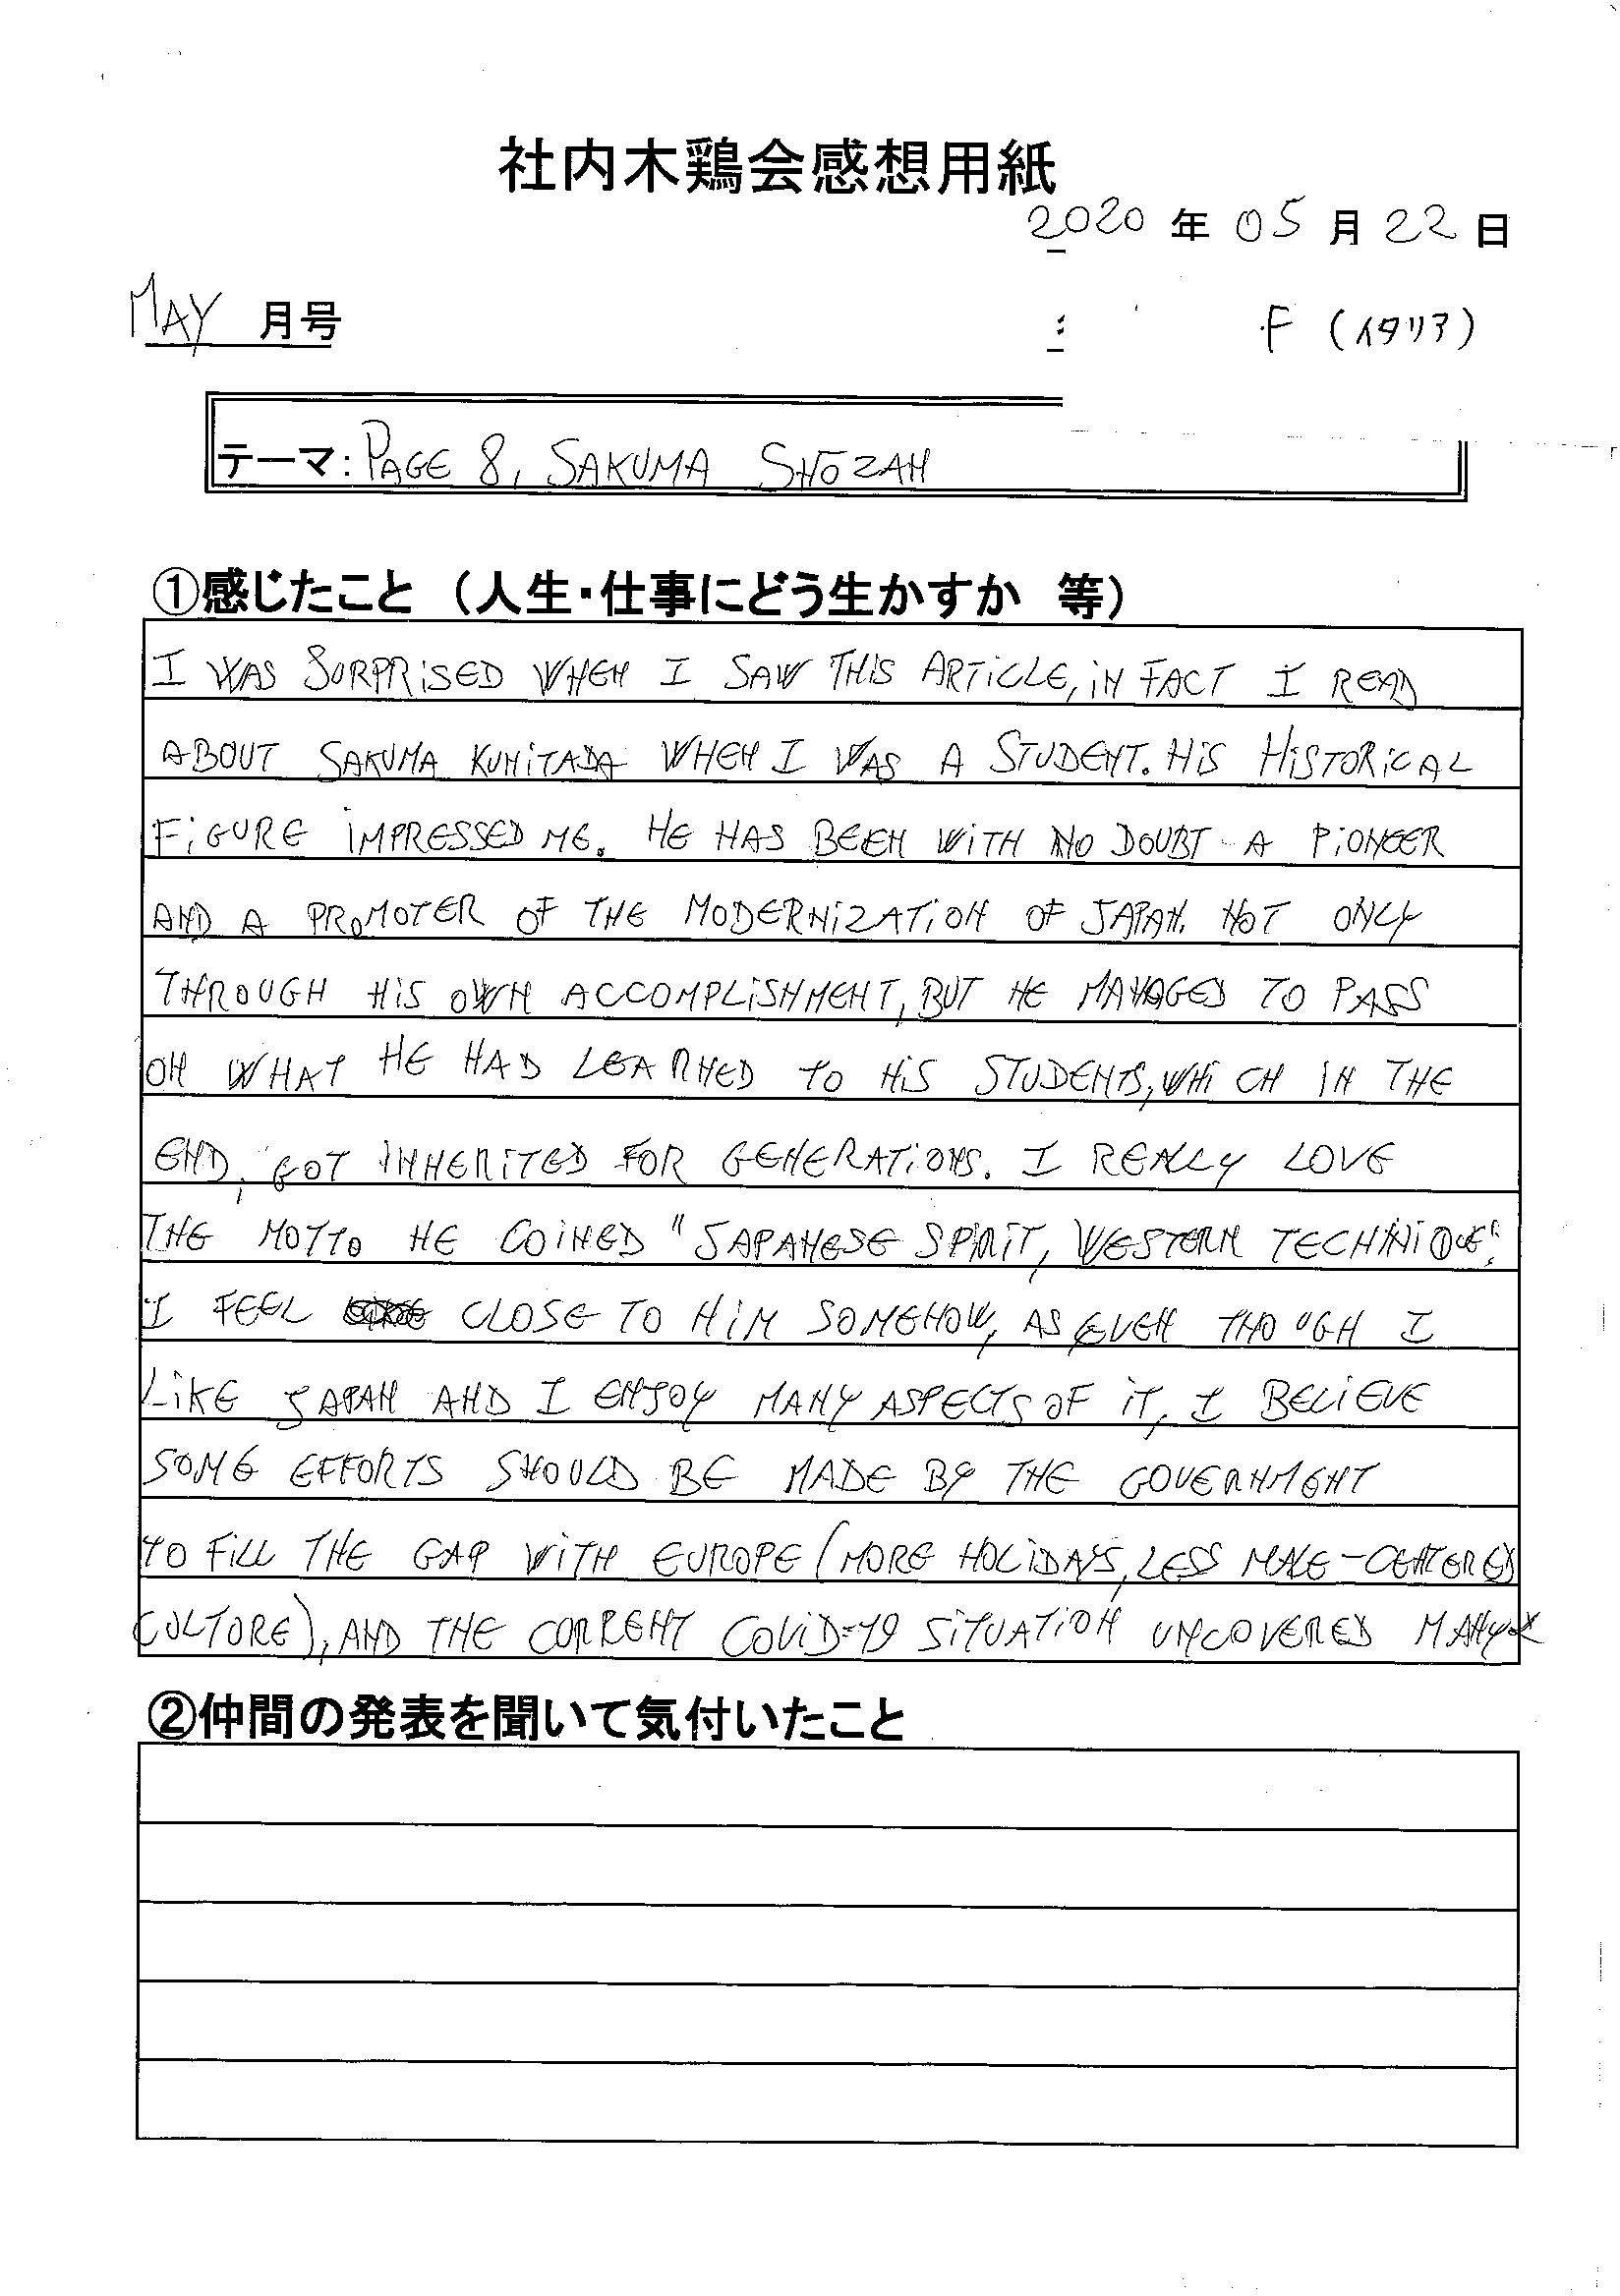 社内木鶏会感想用紙
2020 年 05 月 22 日
MAY 月号
F (イタリア)
テーマ: PAGE 8, SAKUMA SHŌZAN
①感じたこと (人生・仕事にどう生かすか 等)
I WAS SURPRISED WHEN I SAW THIS ARTICLE, IN FACT I READ
ABOUT SAKUMA KUNITADA WHEN I WAS A STUDENT. HIS HISTORICAL
FIGURE IMPRESSED ME. HE HAS BEEN WITH NO DOUBT A PIONEER
AND A PROMOTER OF THE MODERNIZATION OF JAPAN. NOT ONLY
THROUGH HIS OWN ACCOMPLISHMENT, BUT HE MANAGED TO PASS
ON WHAT HE HAD LEARNED TO HIS STUDENTS, WHICH IN THE
END, GOT INHERITED FOR GENERATIONS. I REALLY LOVE
THE MOTTO HE COINED "JAPANESE SPIRIT, WESTERN TECHNIQUE".
I FEEL CLOSE TO HIM SOMEHOW, AS EVEN THOUGH I
LIKE JAPAN AND I ENJOY MANY ASPECTS OF IT, I BELIEVE
SOME EFFORTS SHOULD BE MADE BY THE GOVERNMENT
TO FILL THE GAP WITH EUROPE (MORE HOLIDAYS, LESS MALE-CENTERED
CULTURE), AND THE CURRENT COVID-19 SITUATION UNCOVERED MANY
②仲間の発表を聞いて気付いたこと